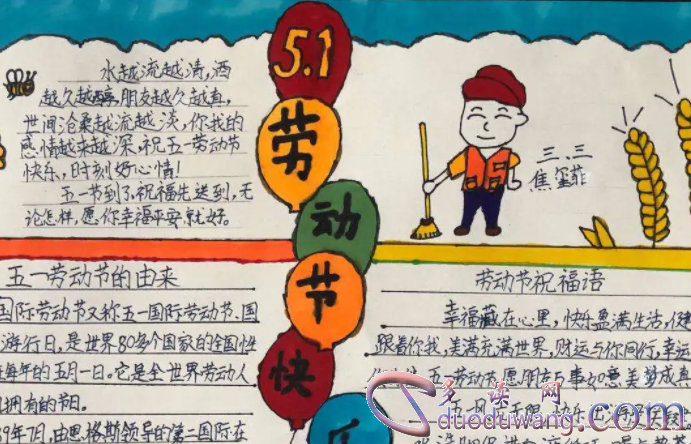 5.1
劳
动
节
快
乐
水越流越清,酒
越久越醇,朋友越久越真,
世间沧桑越流越淡,你我的
感情越来越深,祝五一劳动节
快乐,时刻好心情!
五一节到了,祝福先送到,无
论怎样,愿你幸福平安就好。
三.三
焦
五一劳动节的由来
国际劳动节又称五一国际劳动节、国
游行日,是世界80多个国家的全国性
每年的五月一日。它是全世界劳动人
拥有的节日。
9年7月,由恩格斯领导的第二国际在
劳动节祝福语
幸福藏在心里,快乐盈满生活,健
跟着你我,美满充满世界,财运与你同行,幸运
五一劳动节,愿朋友与事如意,美梦成真
多读网
duoduwang.com